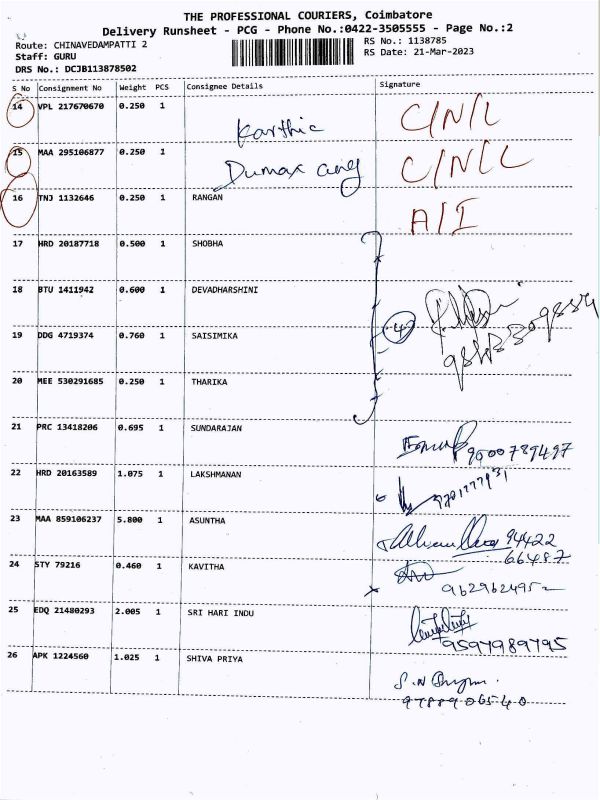 THE PROFESSIONAL COURIERS, Coimbatore
Delivery Runsheet - PCG - Phone No.:0422-3505555 - Page No.:2
Route: CHINAVEDAMPATTI 2
RS No.: 1138785
Staff: GURU
RS Date: 21-Mar-2023
DRS No.: DCJB113878502
S No Consignment No Weight PCS Consignee Details Signature
14 VPL 217670670 0.250 1 Karthic C/N/L
15 MAA 295106877 0.250 1 C/N/L
16 TNJ 1132646 0.250 1 RANGAN A/I
17 HRD 20187718 0.500 1 SHOBHA
18 BTU 1411942 0.600 1 DEVADHARSHINI
19 DDG 4719374 0.760 1 SAISIMIKA 4
20 MEE 530291685 0.250 1 THARIKA
21 PRC 13418206 0.695 1 SUNDARAJAN 9500789497
22 HRD 20163589 1.075 1 LAKSHMANAN
23 MAA 859106237 5.800 1 ASUNTHA 94422
66487
24 STY 79216 0.460 1 KAVITHA
9629624952
25 EDQ 21480293 2.005 1 SRI HARI INDU
9597989795
26 APK 1224560 1.025 1 SHIVA PRIYA
9788906540